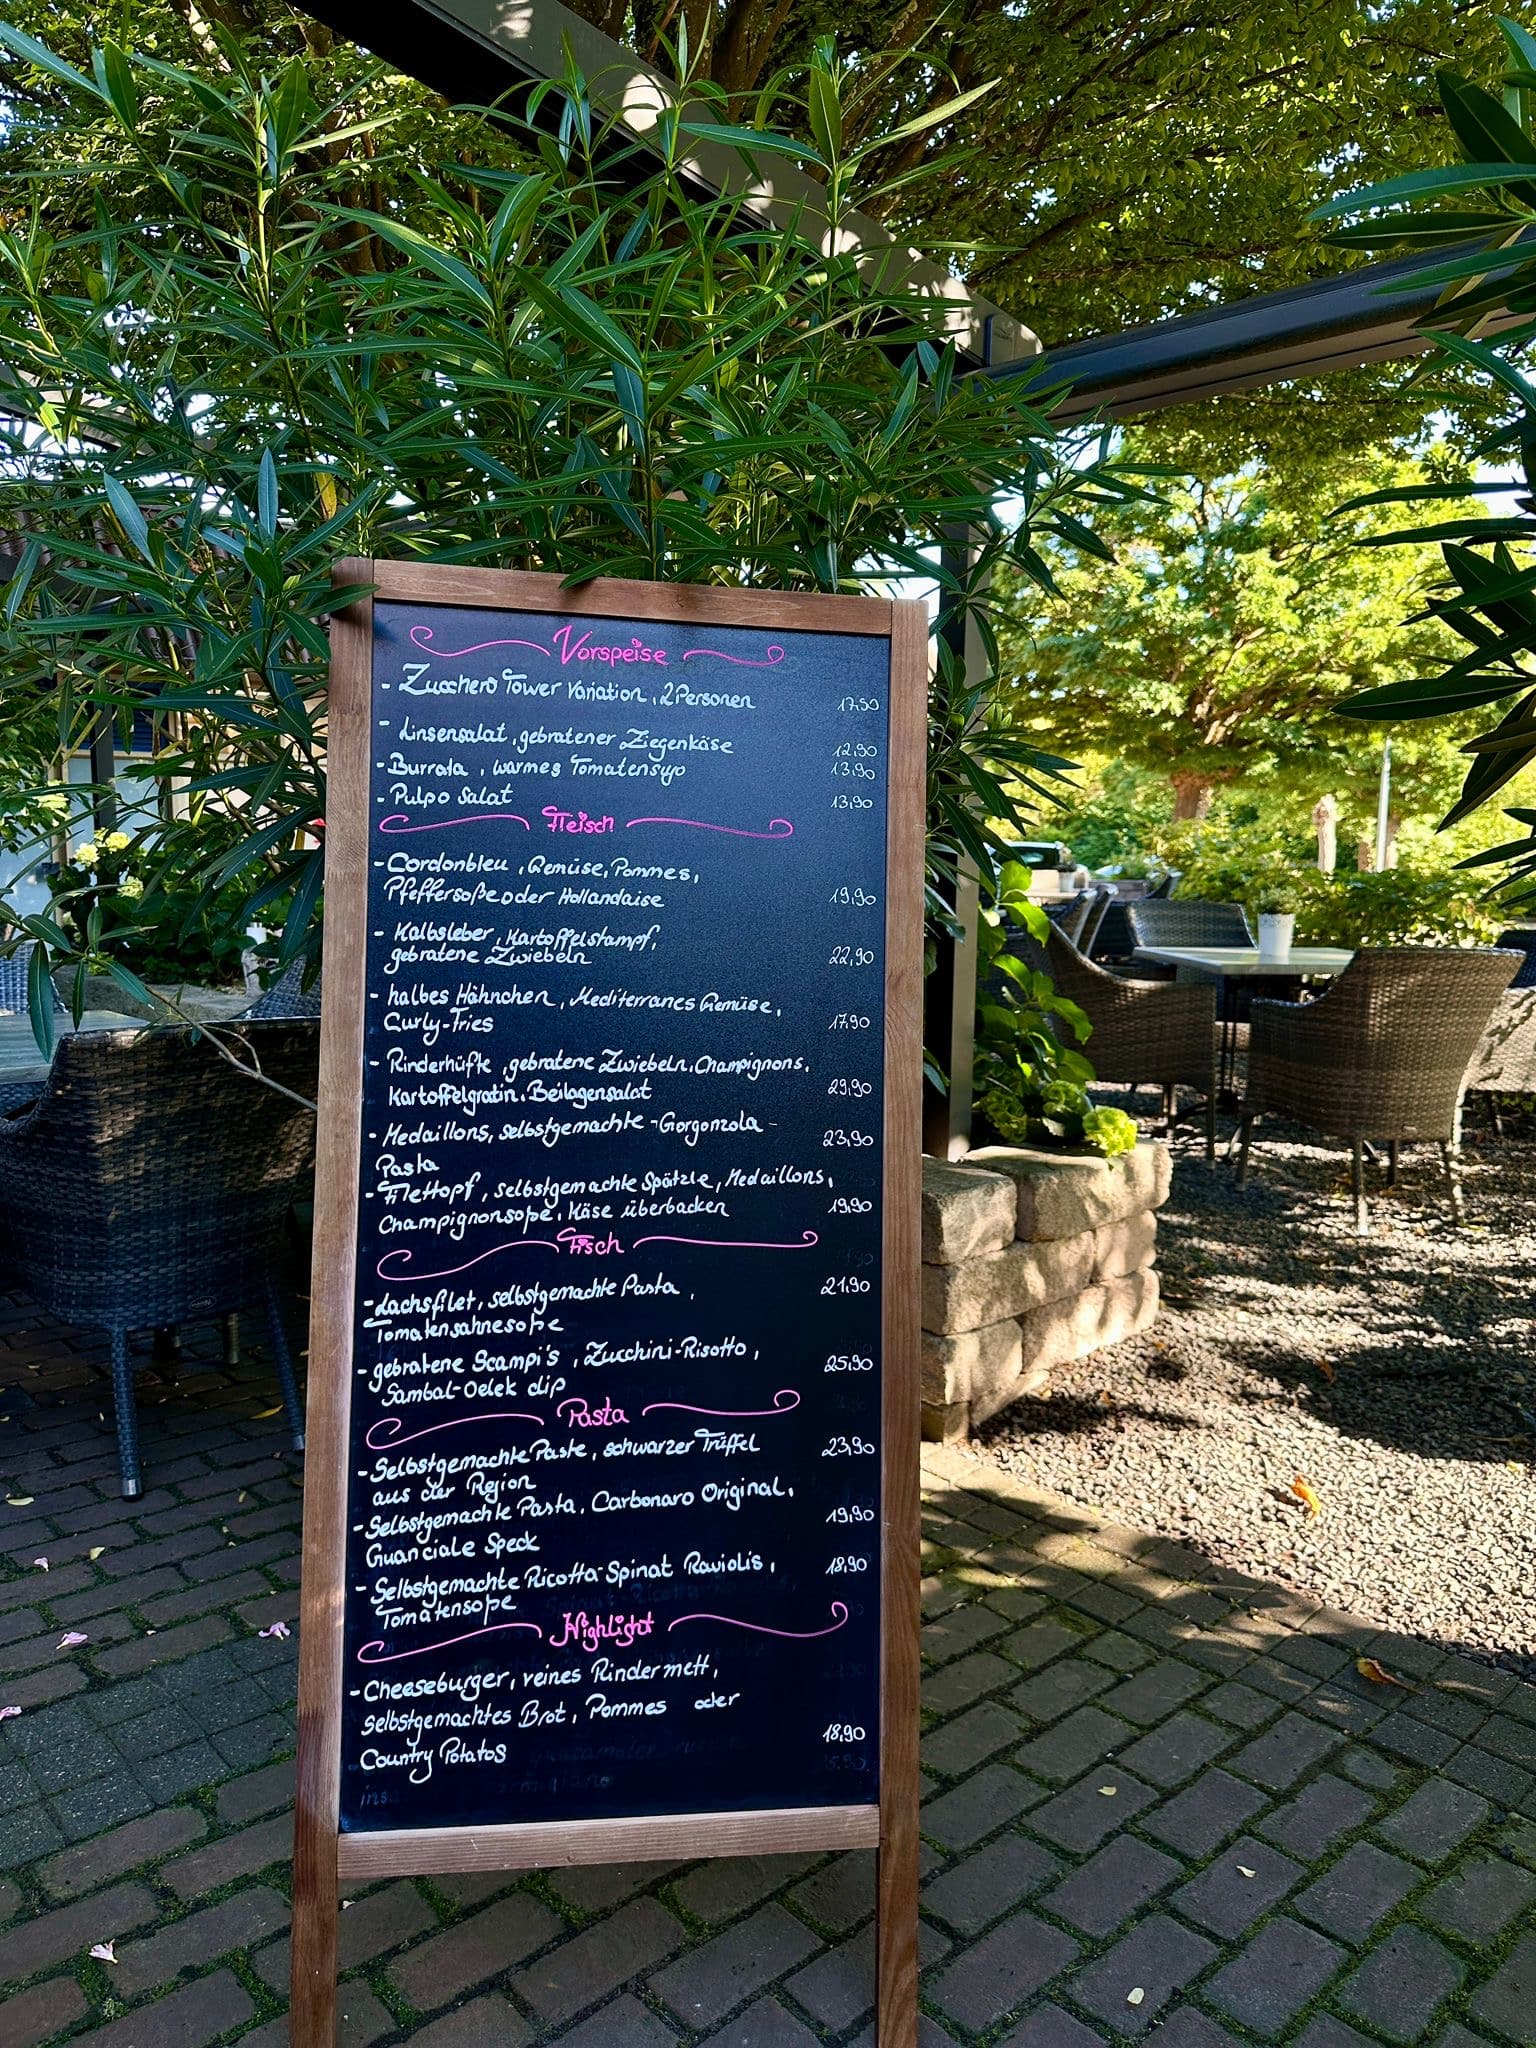 Vorspeise
- Zucchero Tower Variation, 2 Personen 17,50
- Linsensalat, gebratener Ziegenkäse 12,90
- Burrata, warmes Tomatensugo 13,90
- Pulpo Salat 13,90
Fleisch
- Cordonbleu, Gemüse, Pommes,
Pfeffersoße oder Hollandaise 19,90
- Kalbsleber, Kartoffelstampf,
gebratene Zwiebeln 22,90
- halbes Hähnchen, Mediterranes Gemüse,
Curly-Fries 17,90
- Rinderhüfte, gebratene Zwiebeln, Champignons,
Kartoffelgratin, Beilagensalat 29,90
- Medaillons, selbstgemachte - Gorgonzola - 23,90
Pasta
- Filettopf, selbstgemachte Spätzle, Medaillons,
Champignonsoße, Käse überbacken 19,90
Fisch
- Lachsfilet, selbstgemachte Pasta, 21,90
Tomatensahnesoße
- gebratene Scampi's, Zucchini-Risotto, 25,90
Sambal-Oelek dip
Pasta
- Selbstgemachte Paste, schwarzer Trüffel 23,90
aus der Region
- Selbstgemachte Pasta, Carbonara Original, 19,90
Guanciale Speck
- Selbstgemachte Ricotta-Spinat Raviolis, 18,90
Tomatensoße
Highlight
- Cheeseburger, reines Rinder mett,
selbstgemachtes Brot, Pommes oder
Country Potatos 18,90